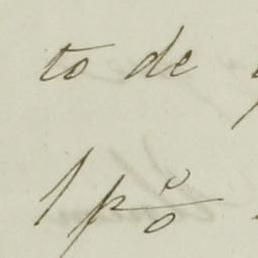 to de
1 p%